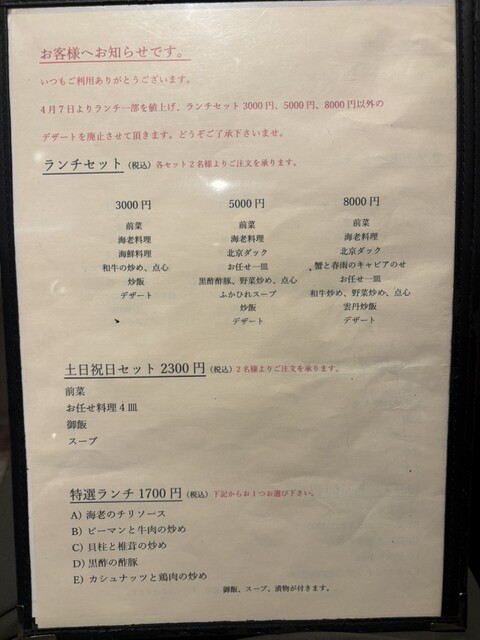 お客様へお知らせです。
いつもご利用ありがとうございます。
4月7日よりランチ一部を値上げ、ランチセット3000円、5000円、8000円以外の
デザートを廃止させて頂きます。どうぞご了承下さいませ。
ランチセット (税込) 各セット2名様よりご注文を承ります。
3000円
前菜
海老料理
海鮮料理
和牛の炒め、点心
炒飯
デザート
5000円
前菜
海老料理
北京ダック
お任せ一皿
黒酢酢豚、野菜炒め、点心
ふかひれスープ
炒飯
デザート
8000円
前菜
海老料理
北京ダック
蟹と春雨のキャビアのせ
お任せ一皿
和牛炒め、野菜炒め、点心
雲丹炒飯
デザート
土日祝日セット 2300円 (税込) 2名様よりご注文を承ります。
前菜
お任せ料理4皿
御飯
スープ
特選ランチ 1700円 (税込) 下記からお1つお選び下さい。
A) 海老のチリソース
B) ピーマンと牛肉の炒め
C) 貝柱と椎茸の炒め
D) 黒酢の酢豚
E) カシュナッツと鶏肉の炒め
御飯、スープ、漬物が付きます。